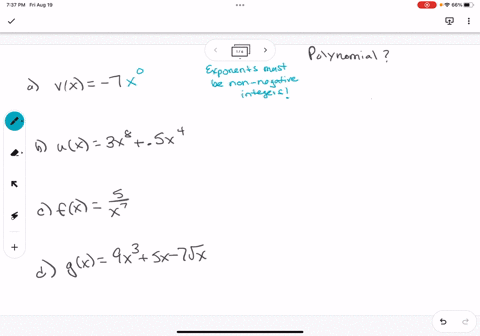 7:37 PM Fri Aug 19
66%
1/4
Polynomial?
Exponents must
be non-negative
integers!
a) v(x) = -7x⁰
b) u(x) = 3x⁸ + .5x⁴
c) f(x) = 5/x⁷
d) g(x) = 9x³ + 5x - 7√x